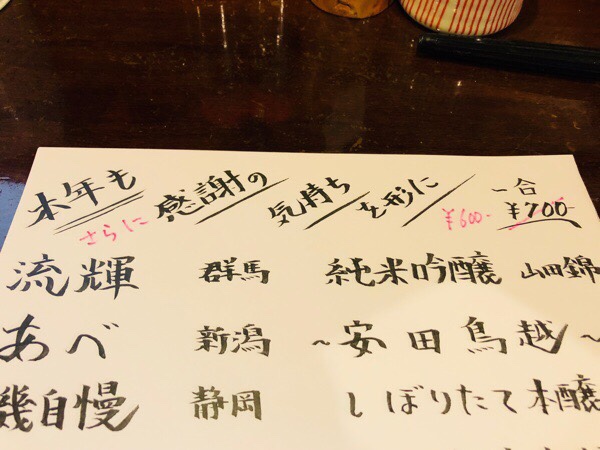 本年も 感謝の 気持ち を形に 一合
さらに ¥600- ¥700
流輝 群馬 純米吟醸 山田錦
あべ 新潟 ～安田鳥越～
幾自慢 静岡 しぼりたて 本醸